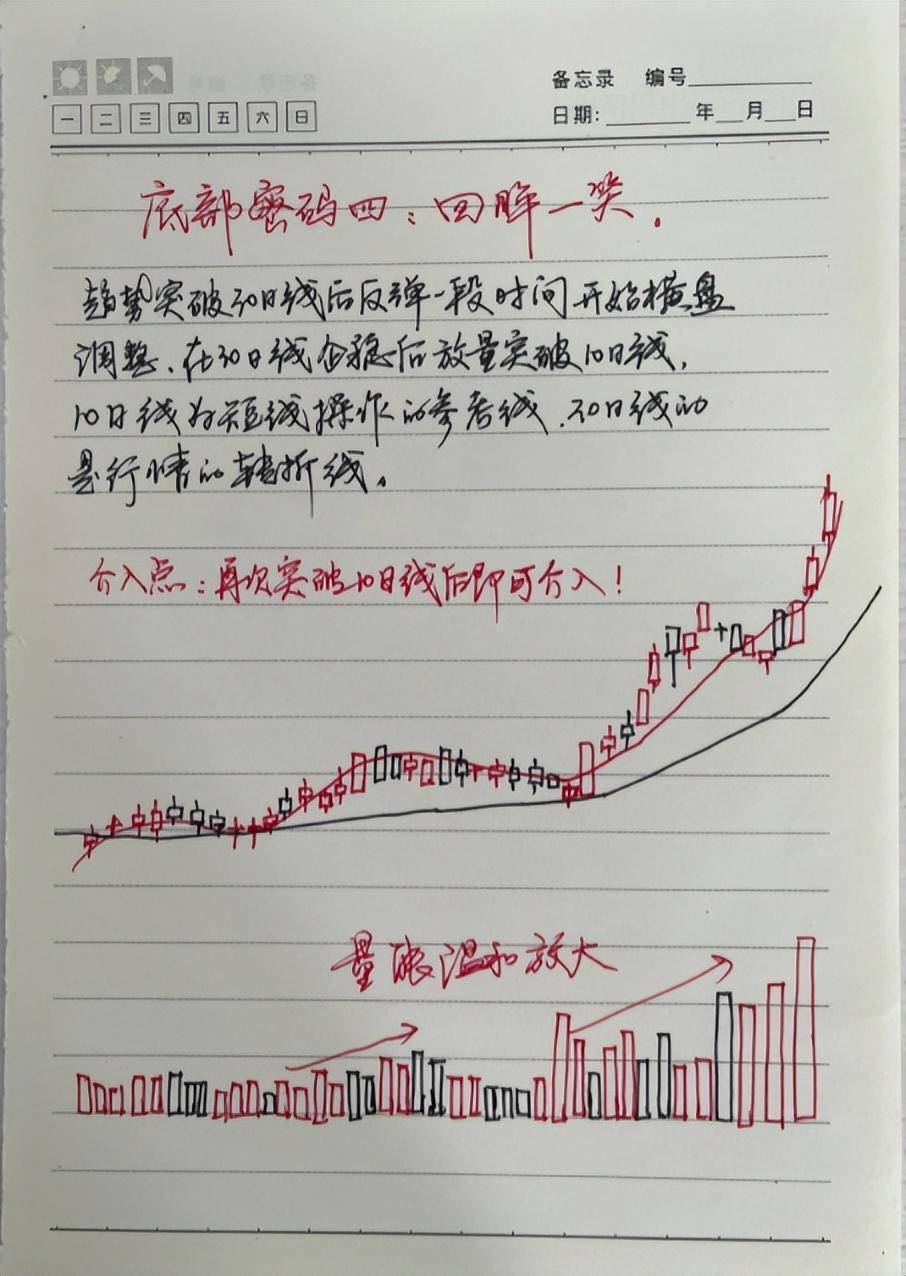 备忘录 编号
一 二 三 四 五 六 日
日期: 年 月 日
底部密码四：回眸一笑.
趋势突破30日线后反弹一段时间开始横盘
调整、在30日线企稳后放量突破10日线,
10日线为短线操作的参考线.30日线的
是行情的转折线。
介入点：再次突破10日线后即可介入!
量能温和放大